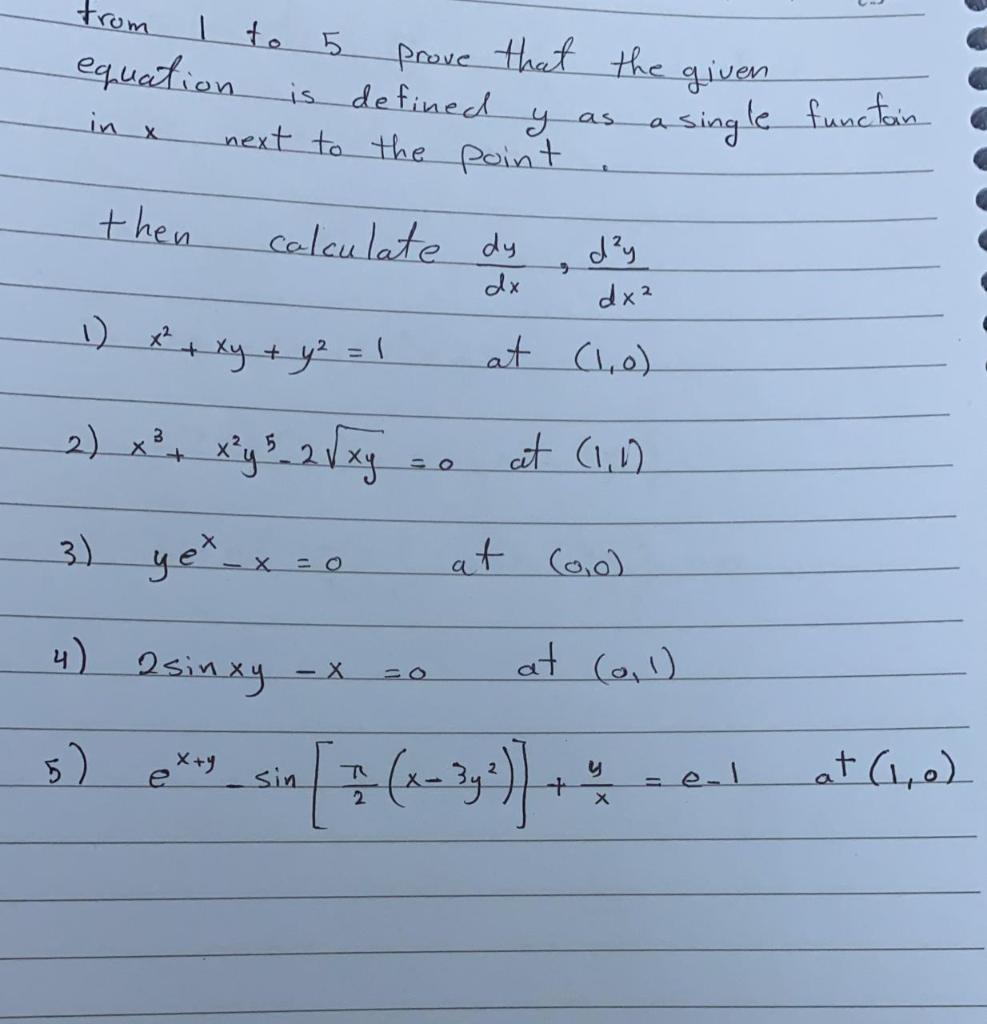 from 1 to 5 prove that the given
equation is defined y as a single functoin
in x next to the point.
then calculate dy/dx , d²y/dx²
1) x² + xy + y² = 1 at (1,0)
2) x³ + x²y⁵ - 2√xy = 0 at (1,1)
3) ye^x - x = 0 at (0,0)
4) 2sinxy - x = 0 at (0,1)
5) e^(x+y) - sin[π/2 (x - 3y²)] + y/x = e-1 at (1,0)